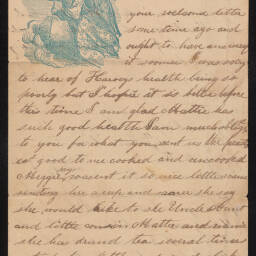 your welcome letter
some time ago and
ought to have answered
it sooner I was sorry
to hear of Harveys health being so
poorly but I hope it is better before
this time I am glad Mattie has
such good health I am much obliged
to you for what you sent us the
eat good to me cooked and uncooked
Maggie says sent it so nice little
her a cup and saucer she say
she would like to she Uncle & Aunt
and little cousin Mattie and
she has drunk tea several times